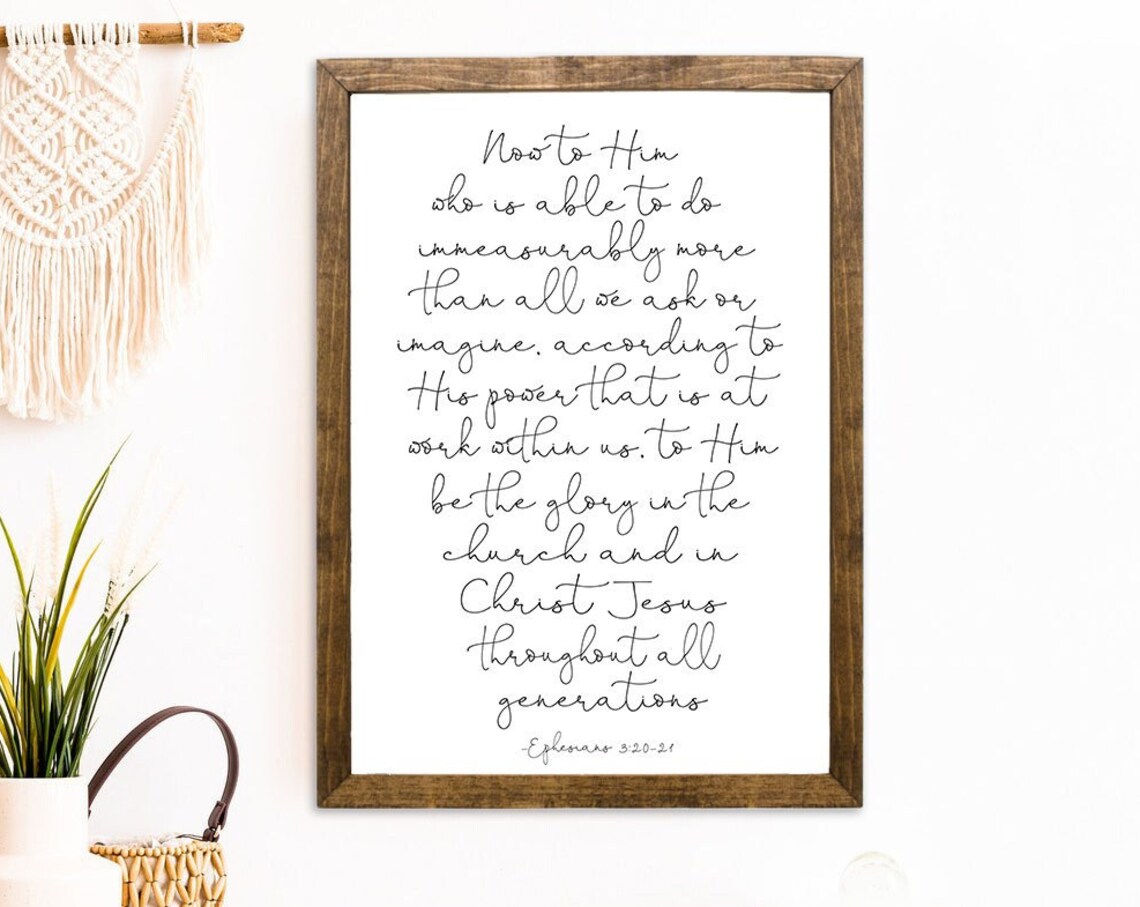 Now to Him
who is able to do
immeasurably more
than all we ask or
imagine, according to
His power that is at
work within us, to Him
be the glory in the
church and in
Christ Jesus
throughout all
generations
-Ephesians 3:20-21